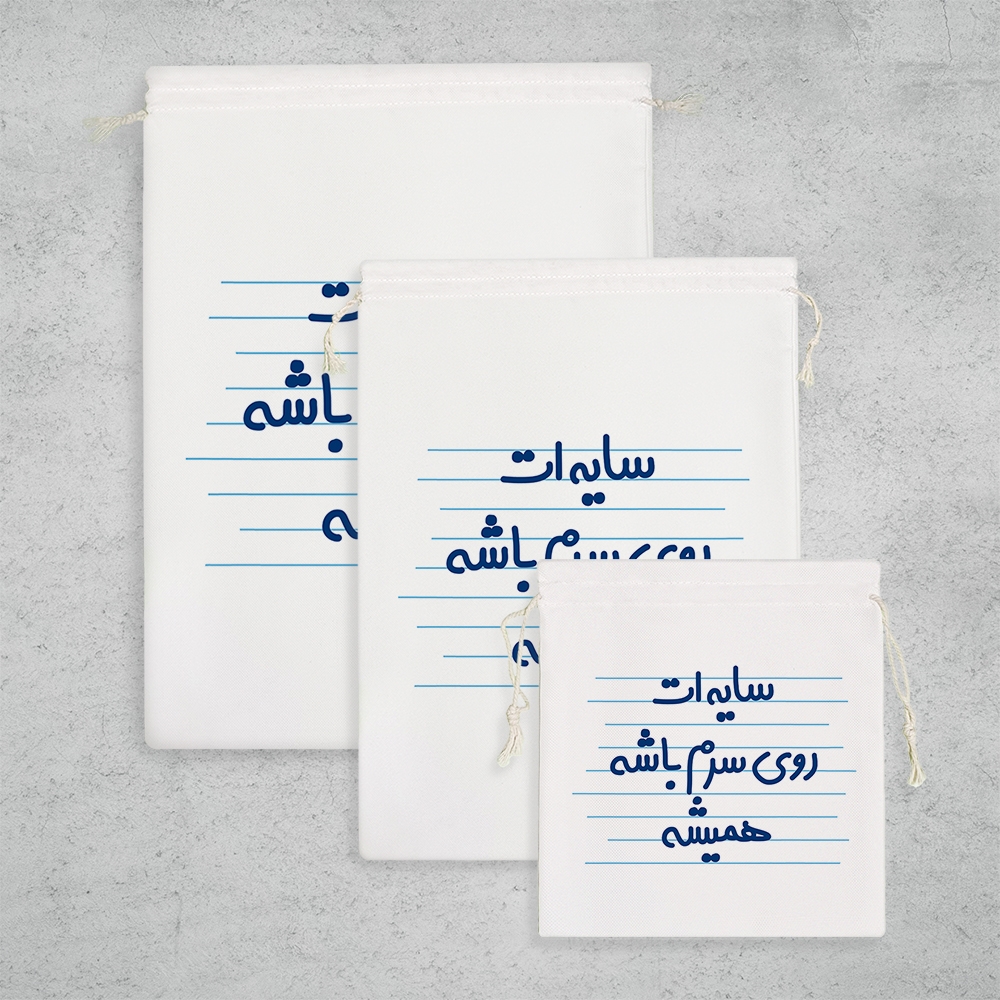 ت
باشه
ه
سایه ات
روی سرم باشه
ه
سایه ات
روی سرم باشه
همیشه